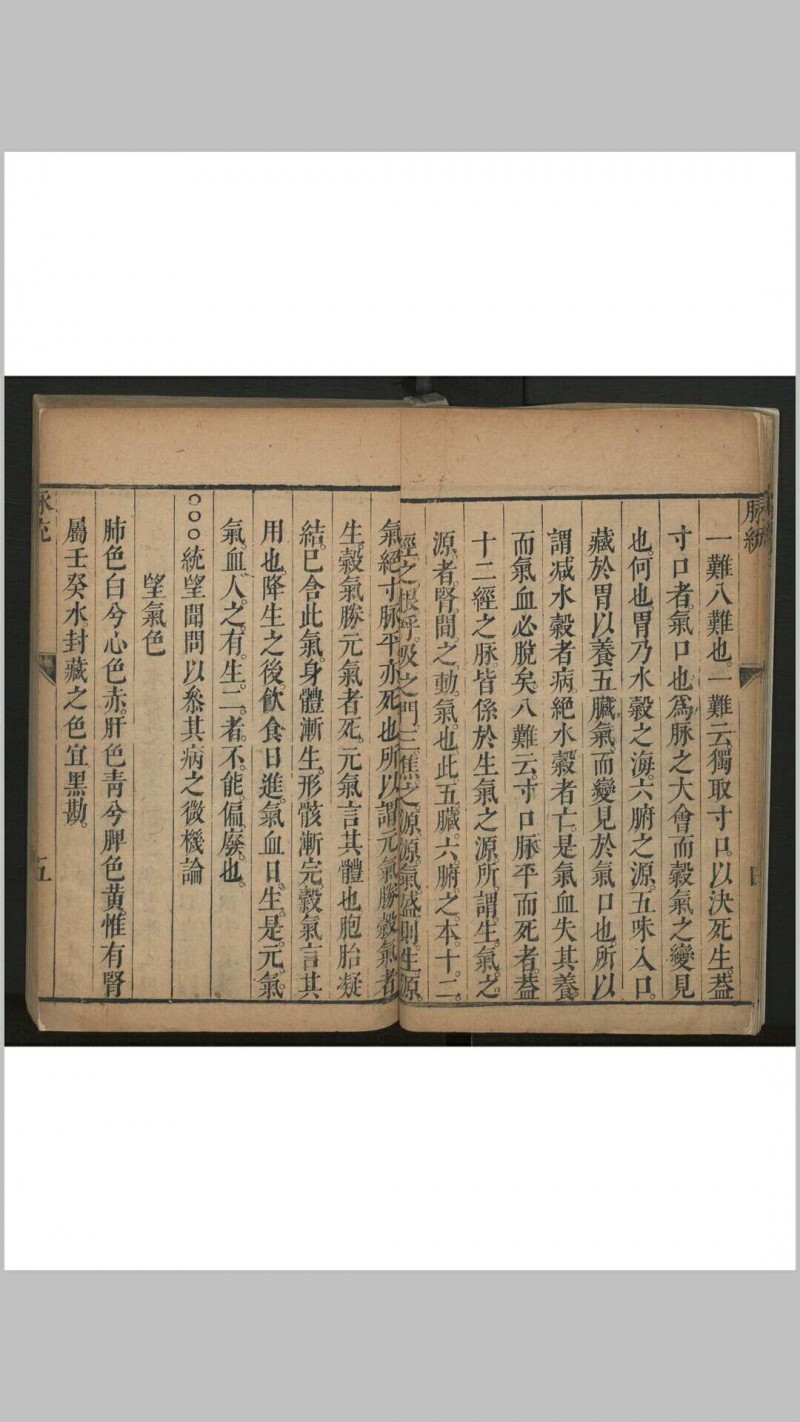 脉統
一難八難也。一難云獨取寸口。以決死生。蓋
寸口者。氣口也。為脉之大會而穀氣之變見
也。何也。胃乃水穀之海。六腑之源。五味入口。
藏於胃以養五臟氣。而變見於氣口也。所以
謂減水穀者病。絕水穀者亡。是氣血失其養。
而氣血必脫矣。八難云。寸口脉平而死者。蓋
十二經之脉。皆係於生氣之源。所謂生氣之
源者。腎間之動氣也。此五臟六腑之本。十二
經之根。呼吸之門。三焦之源。源氣盛則生。源
氣絕寸脉平亦死也。所以謂元氣勝穀氣者
生。穀氣勝元氣者死。元氣言其體也。胞胎凝
結。已含此氣。身體漸生。形骸漸完。穀氣言其
用也。降生之後。飲食日進。氣血日生。是元氣
氣血人之有生。二者不能偏廢也。
○○○統望聞問以叅其病之微機論
望氣色
肺色白兮心色赤。肝色青兮脾色黃。惟有腎
屬壬癸水。封藏之色宜黑勘。
五